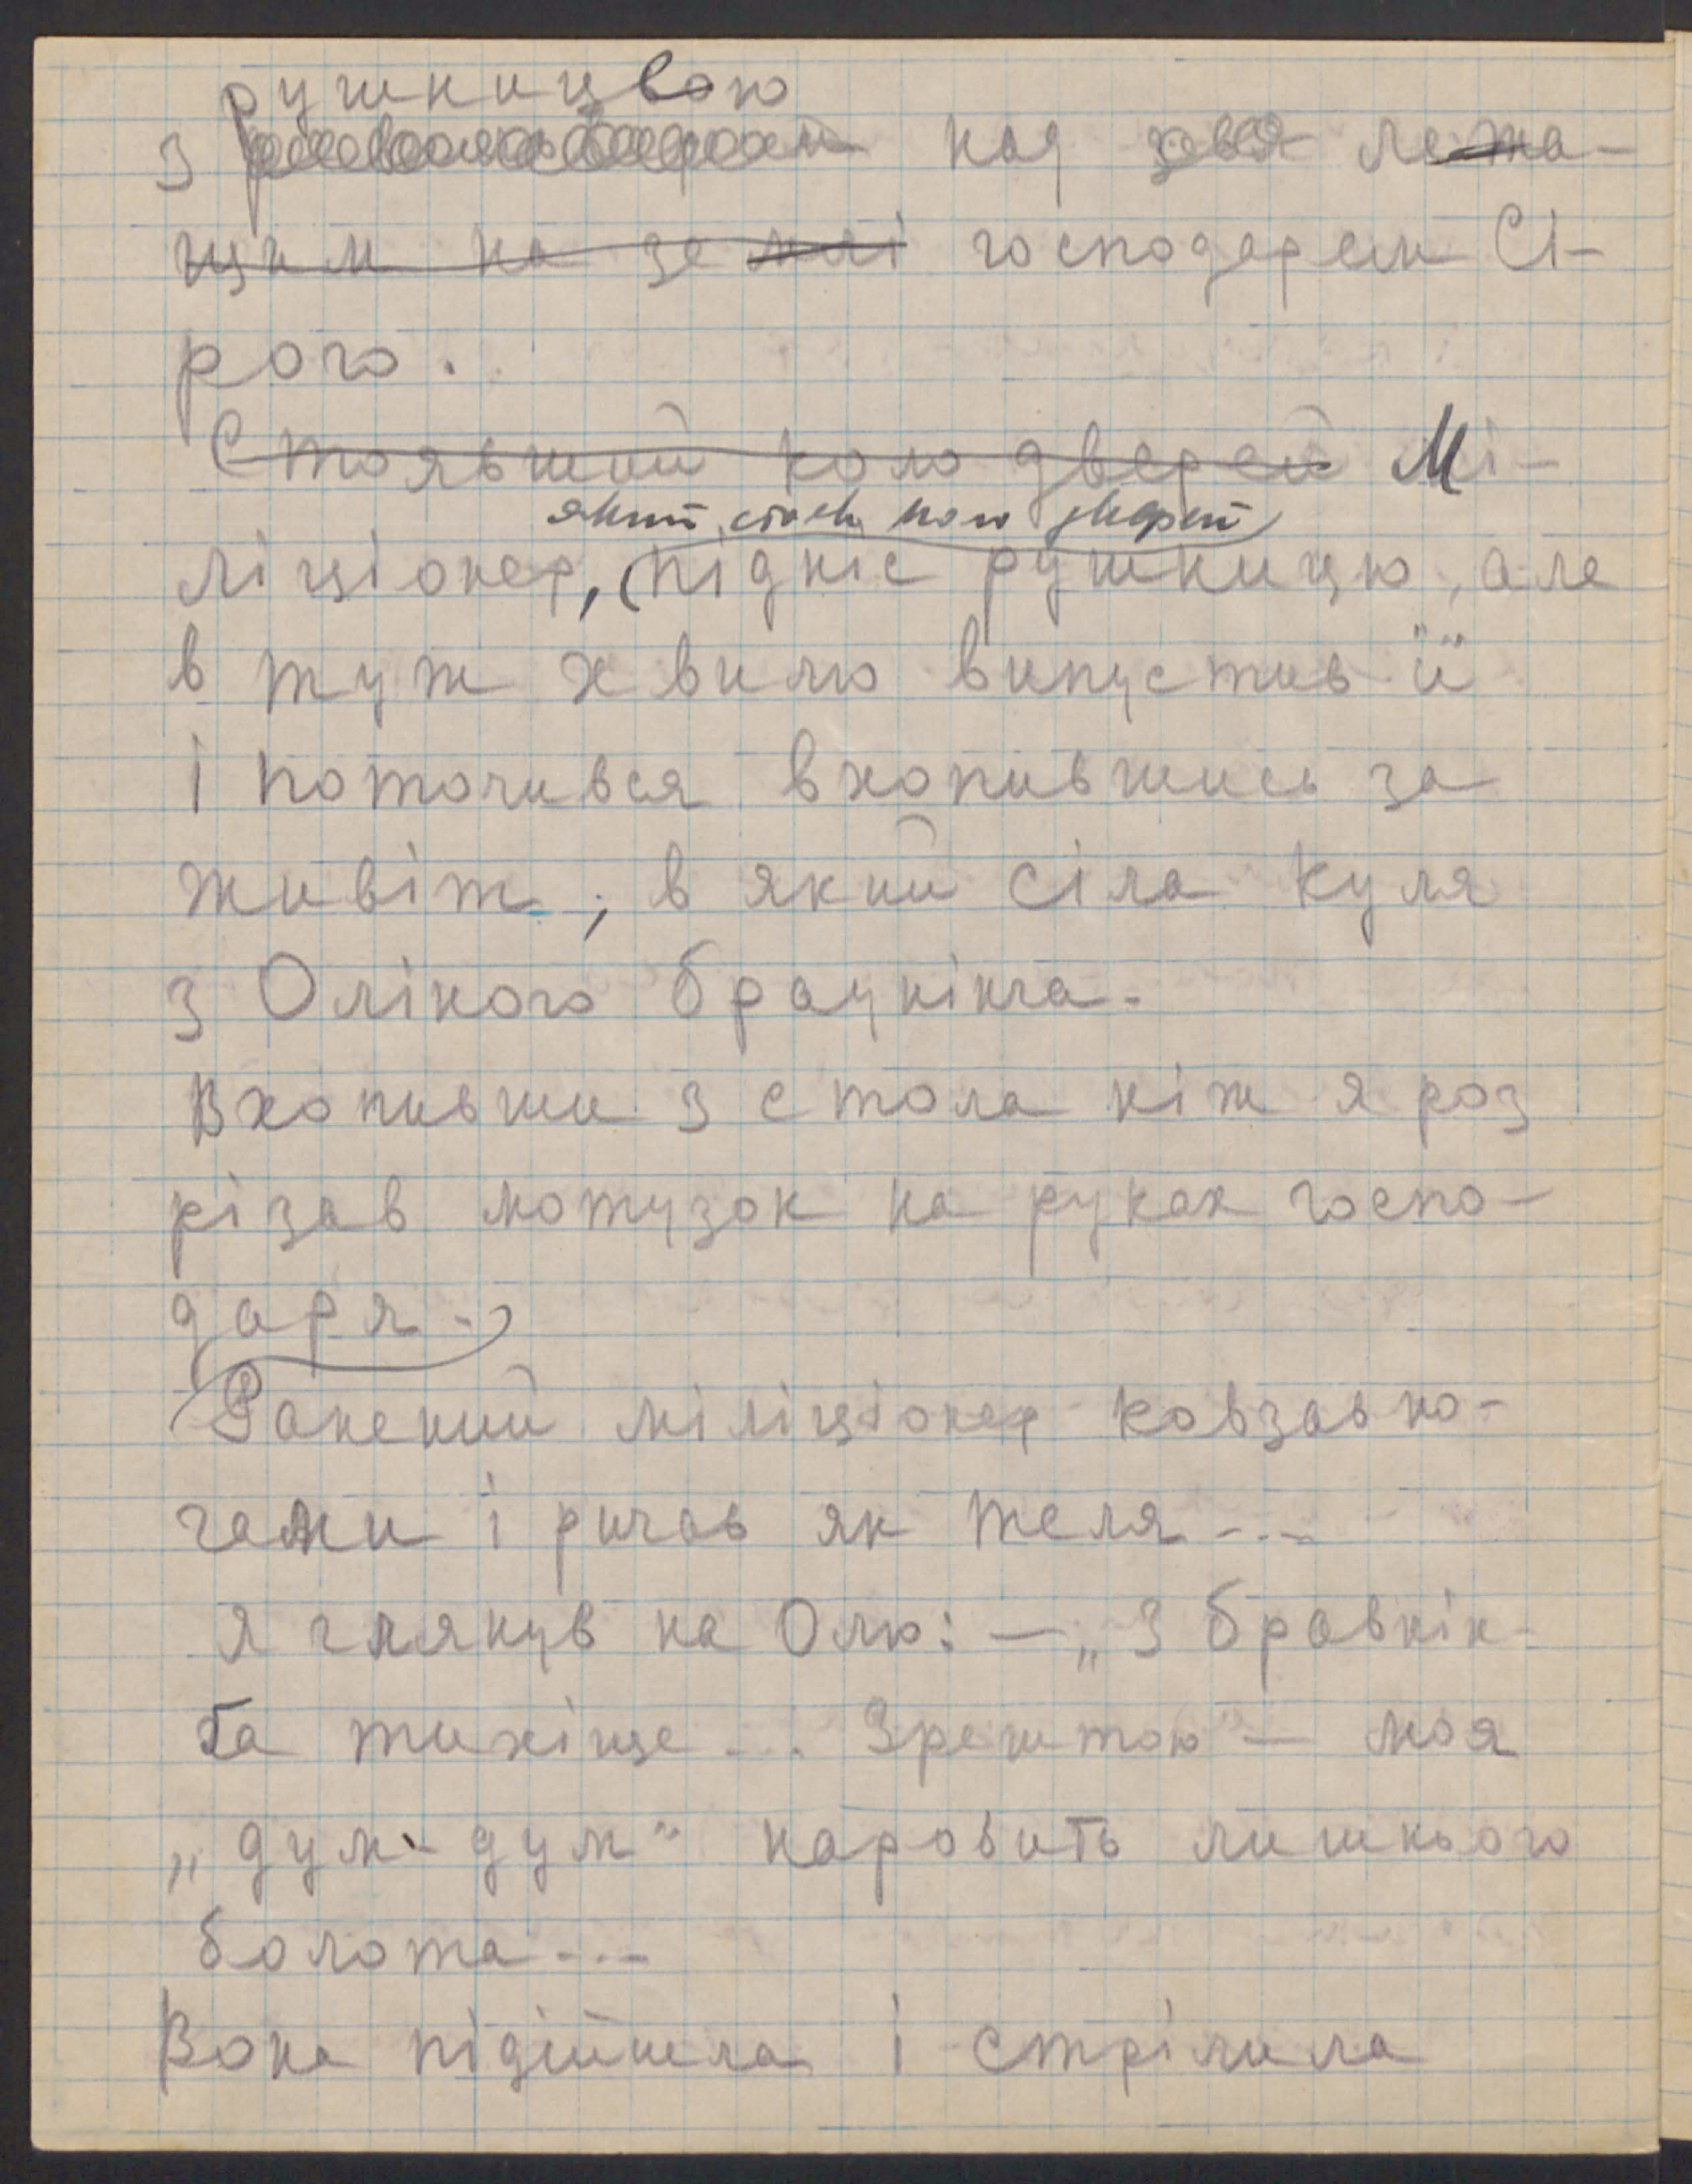 рушницею
з над лежа-
чим на землі господарем Сі-
рого.
Стоявший коло дверей Мі-
який стояв коло дверей
ліціонер, підніс рушницю, але
в туж хвилю випустив її
і поточився вхопившись за
живіт, в який сіла куля
з Оліного бравнінга.
Вхопивши з стола ніж я роз
різав мотузок на руках госпо-
даря.
Ранений міліціонер ковзав но-
гами і ричав як теля...
Я глянув на Олю: — „З бравнін-
ґа тихіше... Зрештою" — моя
„дум-дум" наробить лишнього
болота...
Вона підійшла і стрілила